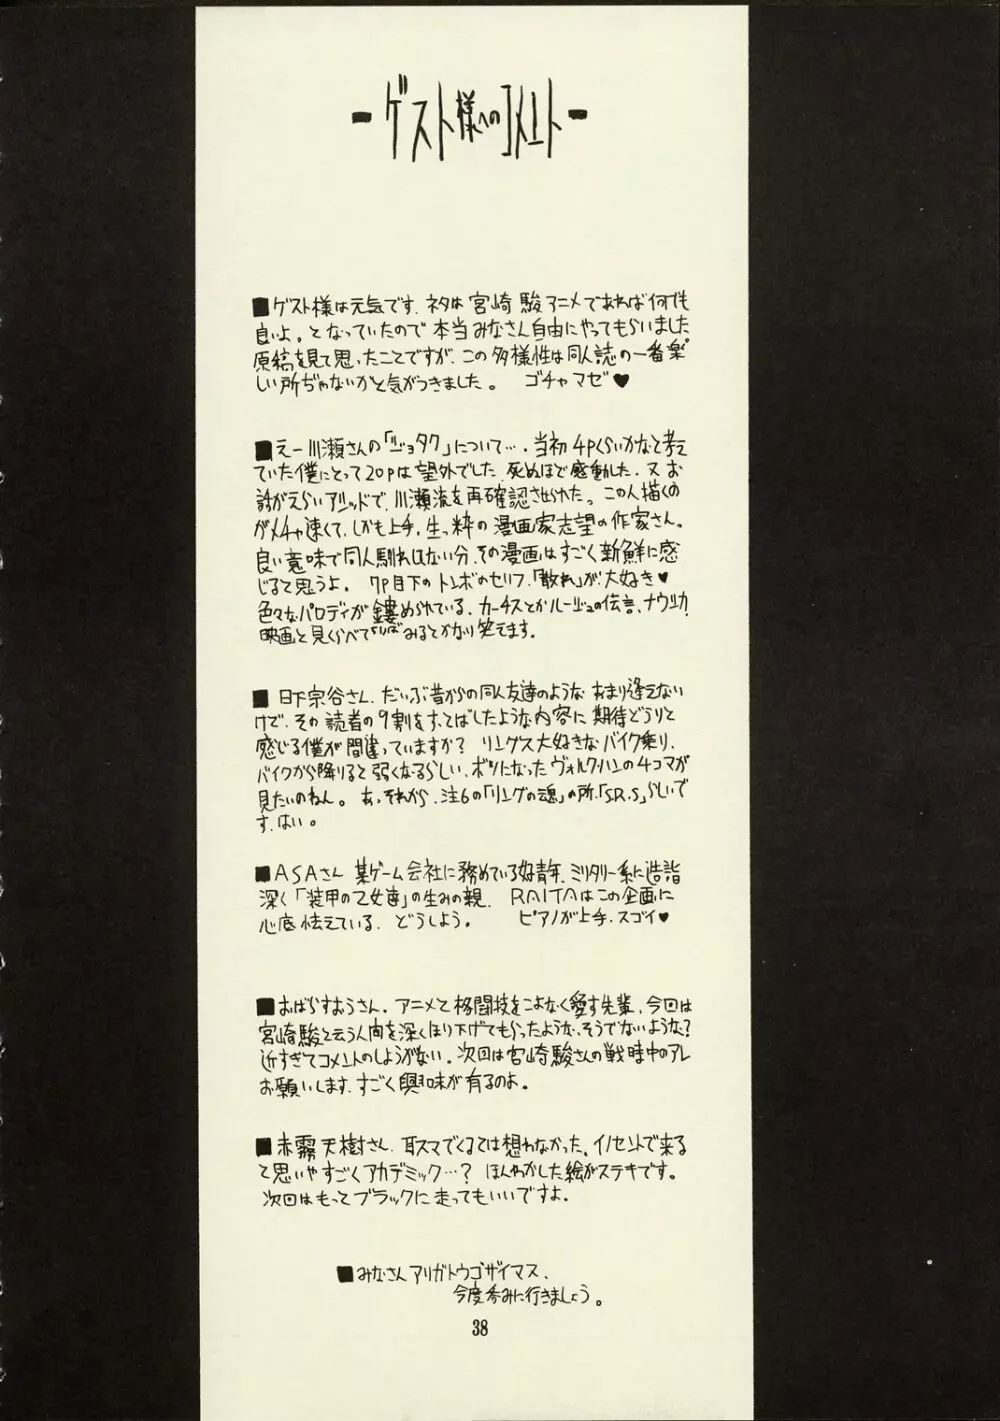 -ゲスト様へのコメント-
■ゲスト様は元気です。ネタは宮崎駿アニメであれば何でも
良いよ。となっていたので本当みなさん自由にやってもらいました
原稿を見て思ったことですが、この多様性は同人誌の一番楽
しい所ぢゃないかと気がつきました。 ゴチャマゼ♥
■えー川瀬さんの「ジョタク」について…。当初4Pくらいかなと考え
ていた僕にとって20Pは望外でした。死ぬほど感動した。又お
話がえらいソリッドで、川瀬流を再確認させられた。この人描くの
がメチャ速くて、しかも上手。生っ粋の漫画家志望の作家さん。
良い意味で同人馴れしてない分、その漫画はすごく新鮮に感
じると思うよ。 7P目下のトンボのセリフ、「散れ」が大好き♥
色々なパロディが鏤められている。カーチスとかルージュの伝言、ナウシカ
映画と見くらべてみるとかなり笑えます。
■日下宗谷さん、だいぶ昔からの同人友達のような あまり逢えない
けど、その読者の9割をすっとばしたような内容に期待どうりと
感じる僕が間違っていますか? リングス大好きなバイク乗り、
バイクから降りると弱くなるらしい、ボツになったヴォルク・ハンの4コマが
見たいのねん。あ、それから、注6の「リングの魂」の所、「S.R.S」らしいで
す、はい。
■ASAさん 某ゲーム会社に務めている好青年、ミリタリー系に造詣
深く「装甲の乙女達」の生みの親、RAITAはこの企画に
心底怯えている、どうしよう。 ピアノが上手、スゴイ♥
■おばらすおうさん、アニメと格闘技をこよなく愛す先輩、今回は
宮崎駿と云う人間を深くほり下げてもらったような、そうでないような?
近すぎてコメントのしようがない。次回は宮崎駿さんの戦時中のアレ
お願いします、すごく興味が有るのよ。
■赤霧天樹さん、耳スマでくるては想わなかった、イノセントで来る
と思いやすごくアカデミック…? ほんわかした絵がステキです。
次回はもってブラックに走ってもいいですよ。
■みなさんアリガトウゴザイマス、
今度呑みに行きましょう。
38